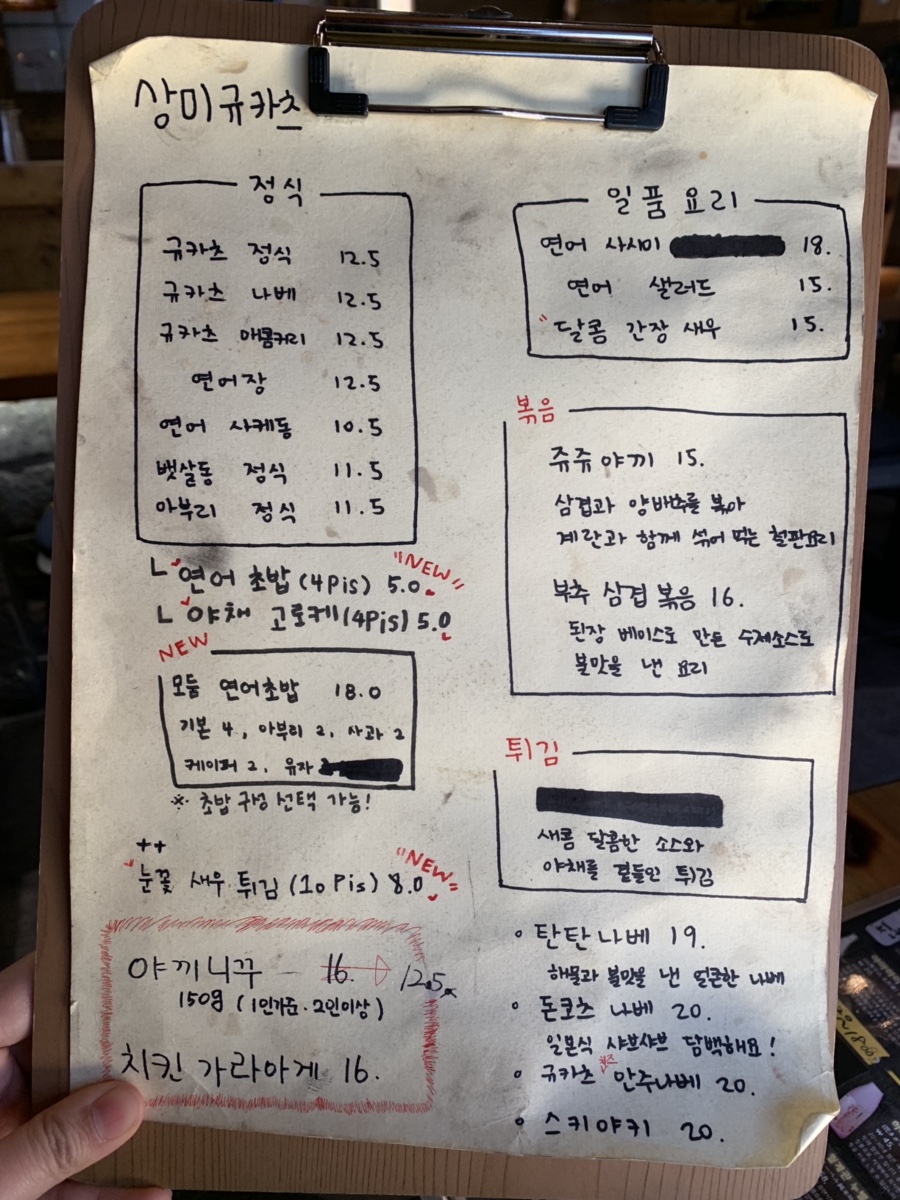 상미규카츠
정식
규카츠 정식 12.5
규카츠 나베 12.5
규카츠 매콤커리 12.5
연어장 12.5
연어 사케동 10.5
뱃살동 정식 11.5
아부리 정식 11.5
ㄴ "연어 초밥 (4Pis) 5.0 "NEW"
ㄴ "야채 고로케 (4Pis) 5.0
NEW
모둠 연어초밥 18.0
기본 4, 아부리 2, 사과 2
케이퍼 2, 유자
※ 초밥 구성 선택 가능!
++
"눈꽃 새우 튀김 (10 Pis) 8.0 "NEW"
야끼니꾸 16. → 12.5
150g (1인기준·2인이상)
치킨 가라아게 16.
일품요리
연어 사시미 18.
연어 샐러드 15.
"달콤 간장 새우 15.
볶음
쥬쥬야끼 15.
삼겹과 양배추를 볶아
계란과 함께 섞어 먹는 철판요리
부추 삼겹 볶음 16.
된장 베이스로 만든 수제소스로
불맛을 낸 요리
튀김
새콤 달콤한 소스와
야채를 곁들인 튀김
• 탄탄나베 19.
해물과 불맛을 낸 얼큰한 나베
• 돈코츠 나베 20.
일본식 샤브샤브 담백해요!
• 규카츠 치즈 만주나베 20.
• 스키야키 20.